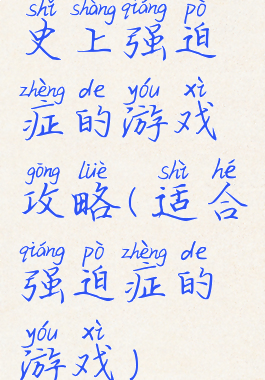 shǐ shàng qiáng pò
史上强迫
zhèng de yóu xì
症的游戏
gōng lüè shì hé
攻略(适合
qiáng pò zhèng de
强迫症的
yóu xì
游戏)